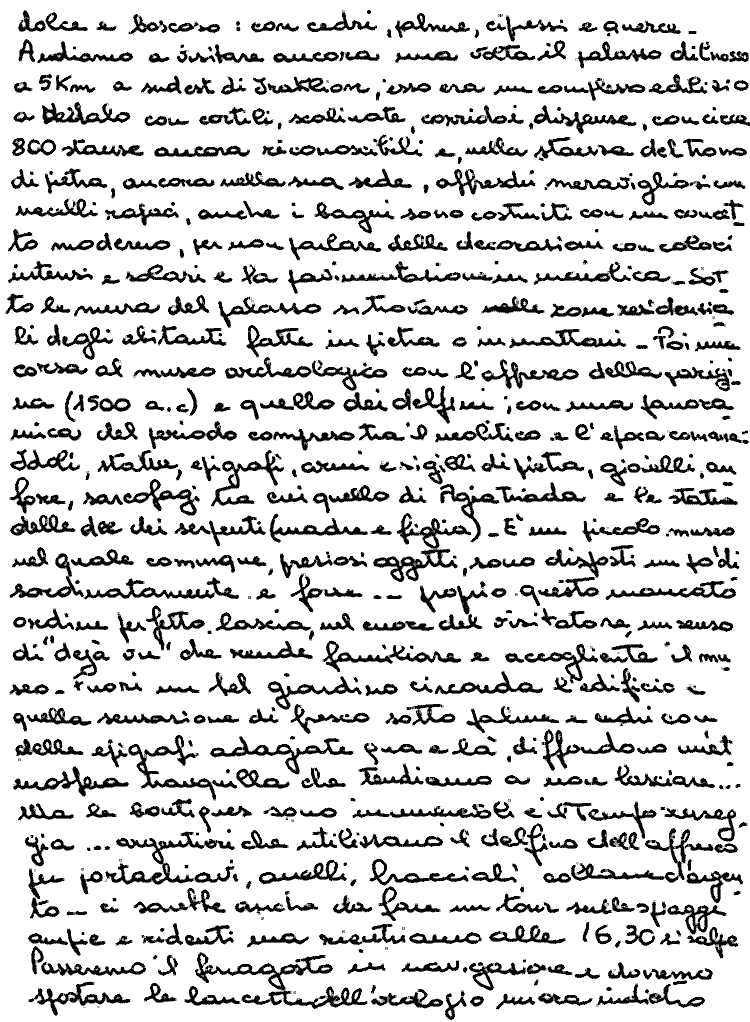 dolce e boscoso : con cedri, palme, cipressi e querce -
Andiamo a visitare ancora una volta il palasso di Cnosso
a 5 Km a sudest di Iraklion, esso era un complesso edilizio
a Dedalo con cortili, scalinate, corridoi, dispense, con circa
800 stanse ancora riconoscibili e, nella stanza del trono
di pietra, ancora nella sua sede, affreschi meravigliosi con
uccelli rapaci, anche i bagni sono costruiti con un concet-
to moderno, per non parlare delle decorasioni con colori
intensi e solari e la pavimentasione in maiolica - Sot
to le mura del palasso si trovano nelle zone residensia
li degli abitanti fatte in pietra o in mattoni - Poi una
corsa al museo archeologico con l'affresco della parigi-
na (1500 a.c) e quello dei delfini ; con una panora
mica del periodo compreso tra il neolitico e l'epoca romana:
Idoli, statue, epigrafi, armi e sigilli di pietra, gioielli, an
fore, sarcofagi tra cui quello di Agiatriada e le statue
delle dee dei serpenti (madre e figlia) - E' un piccolo museo
nel quale comunque, presiosi oggetti, sono disposti un pò di
sordinatamente e forse -- proprio questo mancato
ordine perfetto lascia, nel cuore del visitatore, un senso
di "dejà vu" che rende familiare e accogliente il mu
seo - Fuori un bel giardino circonda l'edificio e
quella sensasione di fresco sotto palme e cedri con
delle epigrafi adagiate qua e là, diffondono un'at
mosfera tranquilla che tendiamo a non lasciare...
Ma le boutiques sono innumerevoli e il Tempo
gia ... argentieri che utilissano il delfino dell'affresco
per portachiavi, anelli, bracciali collane d'argen
to -- ci sarebbe anche da fare un tour sulle spiagge
ampie e ridenti ma rientriamo alle 16,30 si salpa
Passeremo il ferragosto in navigasione e dovremo
spostare le lancette dell'orologio un'ora indietro